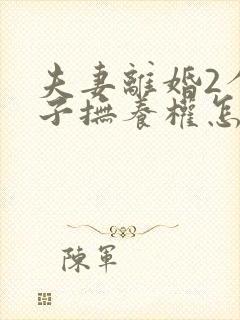 夫妻離婚2
子撫養權怎
陳軍